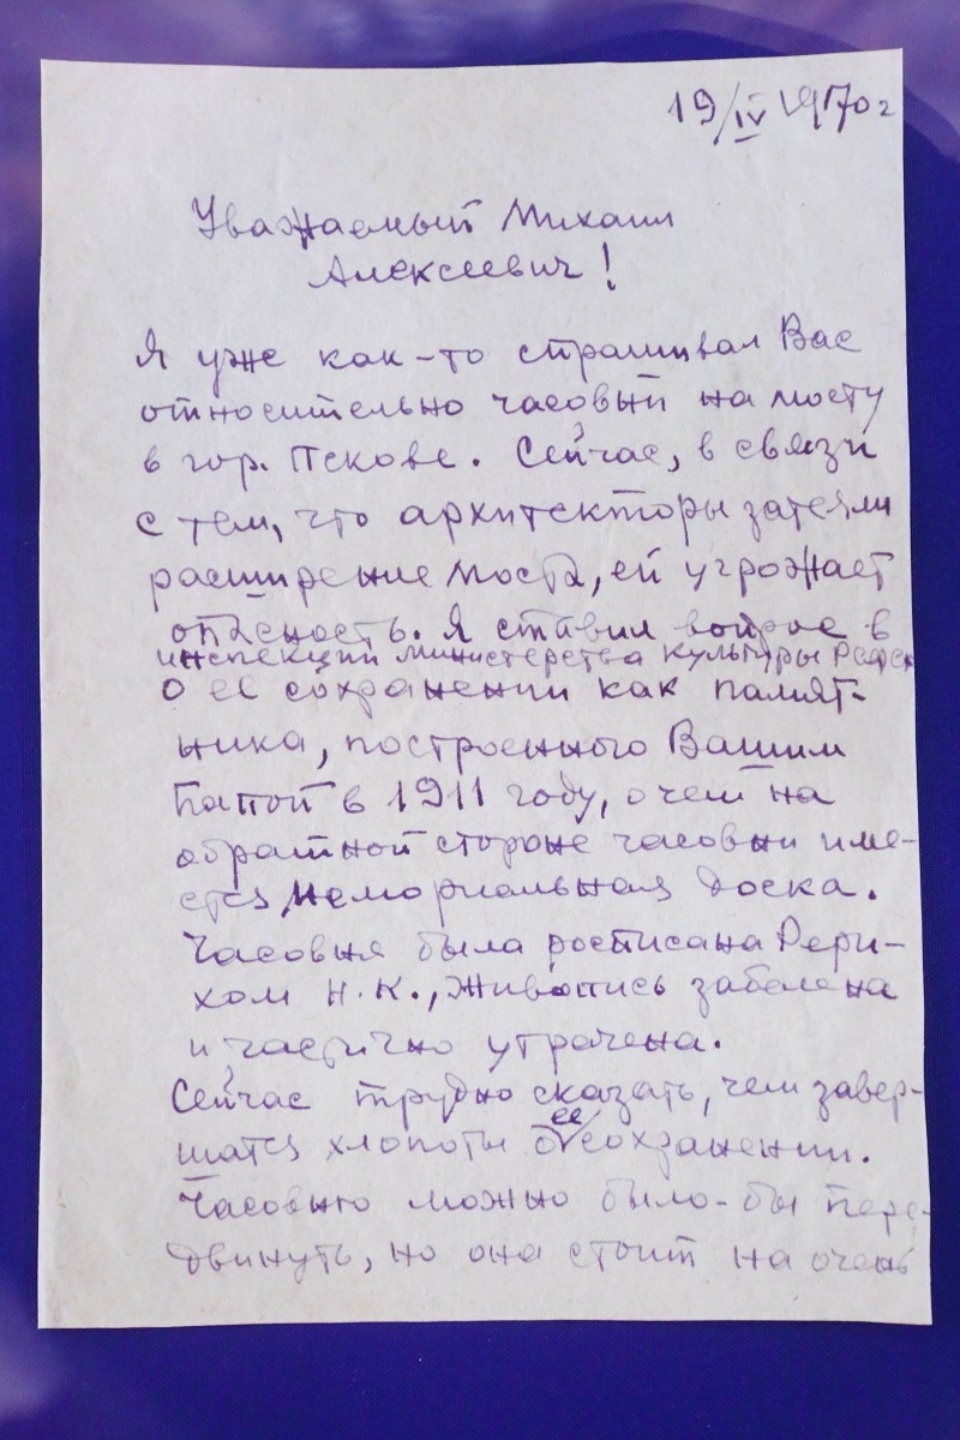 19/IV 1970 г
Уважаемый Михаил
Алексеевич!
Я уже как-то спрашивал Вас
относительно часовни на мосту
в гор. Пскове. Сейчас, в связи
с тем, что архитекторы затеяли
расширение моста, ей угрожает
опасность. Я ставил вопрос в
инспекции министерства культуры РСФСР
о её сохранении как памят-
ника, построенного Вашим
папой в 1911 году, о чем на
обратной стороне часовни име-
ется мемориальная доска.
Часовня была росписана Рери-
хом Н.К., живопись забелена
и частично утрачена.
Сейчас трудно сказать, чем завер-
шатся хлопоты о ее сохранении.
Часовню можно было-бы пере-
двинуть, но она стоит на очень